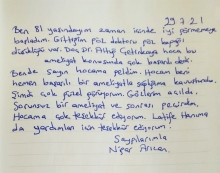 29.7.21
Ben 81 yaşındayım zaman içinde iyi görmemeye
başladım. Gittiğim göz doktoru göz kapağı
düşüklüğü var. Doç. Dr. Altuğ Çetinkaya hoca bu
ameliyat konusunda çok başarılı dedi.
Bende sayın hocama geldim. Hocam beni
hemen başarılı bir ameliyatla sağlığıma kavuşturdu.
Şimdi çok güzel görüyorum. Gözlerim açıldı.
Sorunsuz bir ameliyat ve sonrası geçirdim.
Hocama çok teşekkür ediyorum. Latife Hanıma
da yardımları için teşekkür ediyorum.
Saygılarımla
Arıcan.